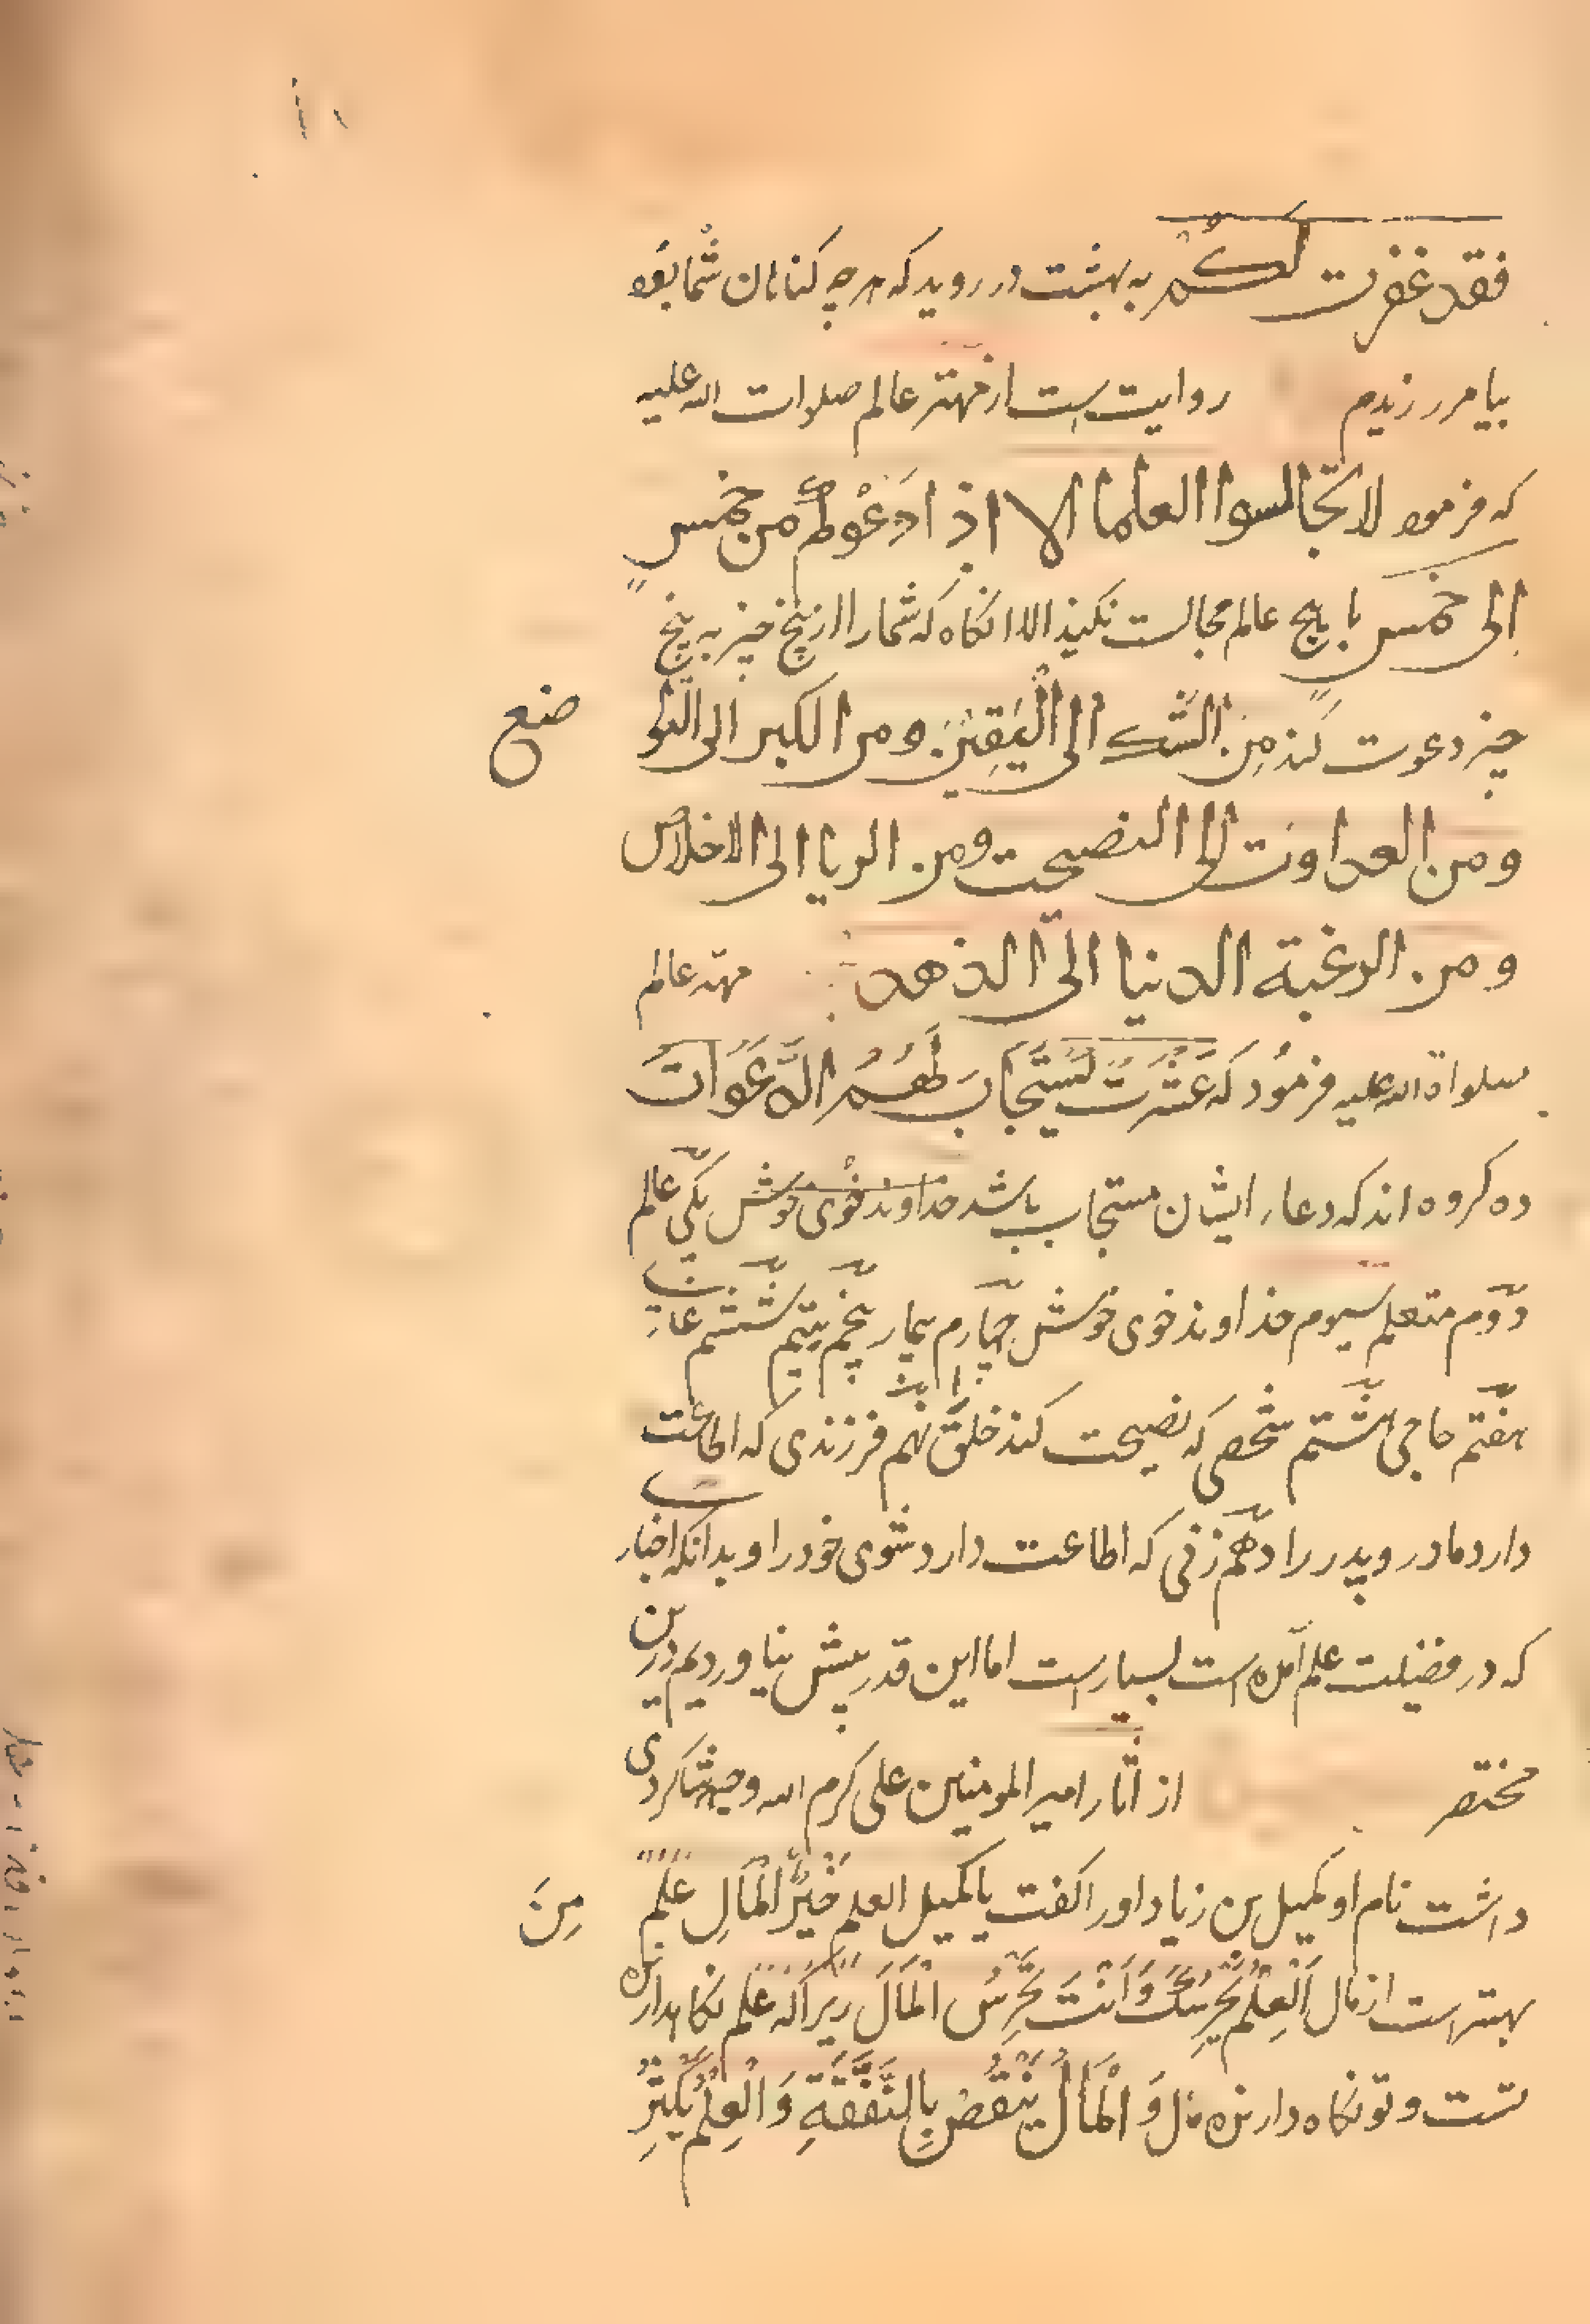 فقد غفرت لكم به بهشت در روید که هرچه کناهان شما بود
بیامرزیدم روایت است از مهتر عالم صلوات الله علیه
که فرمود لا تجالسوا العلما الا اذا دعوكم من خمس
الى خمس با هیچ عالم مجالست نکنید الا انکاه که شمارا از پنج چیز به پنج
چیز دعوت کند مِن الشك الى الْيَقِين و من الكبر الى التوا
ضع
و من العداوت الى النصيحت و من الريا الى الاخلاص
و من الرغبة الدنيا الى الذهد مهتر عالم
سلواة الله علیه فرمُود که عَشرَت تُستَجَابَ لَهُمُ الدَّعَوَاتَ
ده کروه اند که دعاء ایشان مستجاب باشد خداوند خوی خوش یکی عالم
دوّم متعلم سیوم خداوند خوی خوش چهارم بیمار پنجم یتیم ششم غازی
هفتم حاجی هشتم شخصی که نصیحت کند خلق را نهم فرزندی که اطاعت
دارد مادر و پدر را دهم زنی که اطاعت دارد شوی خود را و بدانکه اخبار
که در فضیلت علم آمده است بسیار است اما این قدر بیش نیاوردیم درین
مختصر از اثار امیر المومنین علی کرم الله وجهه شاکردی
داشت نام او کمیل بن زیاد او را کفت یا کمیل العلم خَيرٌ مِنَ الْمَالِ علم
بهتر است از مال اَلْعِلْمُ يَحْرِسُكَ وَ اَنْتَ تَحْرِسُ الْمَالَ زیرا که علم نکاهدارنده
تست و تو نکاه دارنده مال وَ الْمَالُ يَنْقُصُ بِالنَّفَقَةِ وَ الْعِلْمُ يَكْثِرُ